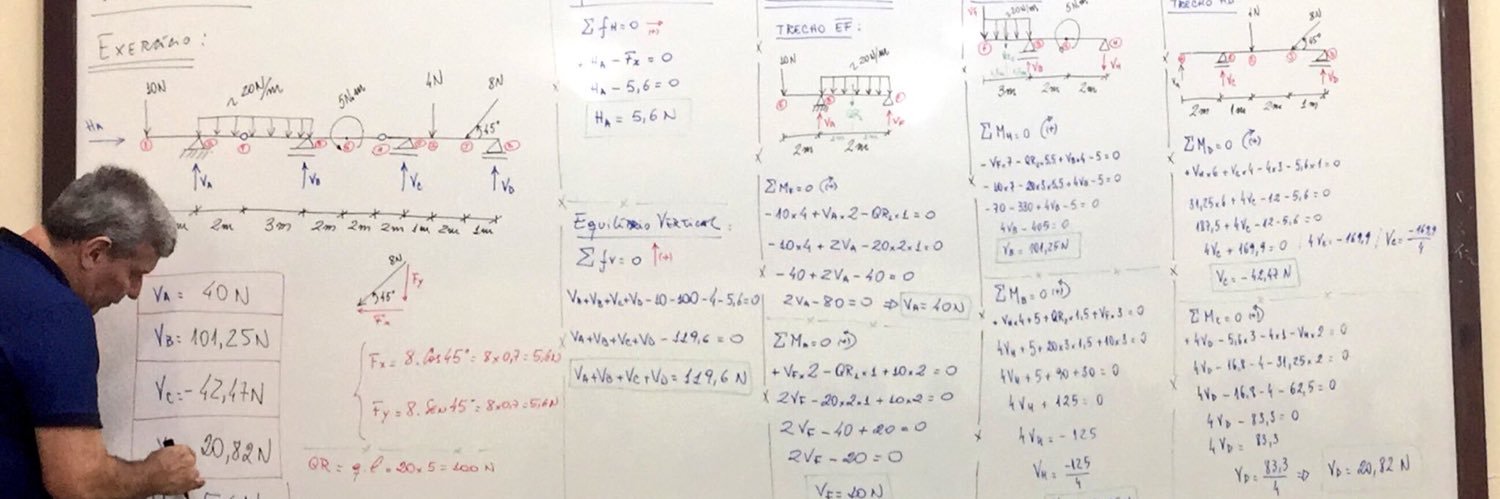 EXERCÍCIO:
10N
20N/m
5N.m
4N
8N
45°
HA
VA
VB
VC
VD
2m
3m
2m
2m
2m
1m
2m
1m
8N
45°
Fy
Fx
VA = 40N
VB = 101,25N
VC = -42,47N
20,82N
Fx = 8.Cos45° = 8x0,7 = 5,6N
Fy = 8.Sen45° = 8x0,7 = 5,6N
QR = q.l = 20x5 = 100N
ΣfH=0 (+)
HA - Fx = 0
HA - 5,6 = 0
HA = 5,6N
Equilíbrio Vertical:
Σfv=0 (+)
VA+VB+VC+VD-10-100-4-5,6=0
VA+VB+VC+VD-119,6=0
VA+VB+VC+VD=119,6N
TRECHO EF:
10N
20N/m
QR
VA
VF
2m
2m
ΣMF=0 (+)
-10x4+VA x2-QR1x1=0
-10x4+2VA-20x2x1=0
-40+2VA-40=0
2VA-80=0 ⇒ VA=40N
ΣMA=0 (+)
+VF x2-QR1x1+10x2=0
2VF-20x2x1+10x2=0
2VF-40+20=0
2VF-20=0
VF=10N
VF
20N/m
5N.m
VB
VH
3m
2m
2m
ΣMH=0 (+)
-VF x7-QR2x5,5+VB x4-5=0
-10x7-20x3x5,5+4VB-5=0
-70-330+4VB-5=0
4VB-405=0
VB=101,25N
ΣMB=0 (+)
+VH x4+5+QR2x1,5+VF x3=0
4VH+5+20x3x1,5+10x3=0
4VH+5+90+30=0
4VH+125=0
4VH=-125
VH=-125/4
TRECHO HD
4N
8N
45°
VC
VD
2m
1m
2m
1m
ΣMD=0 (+)
+VH x6+VC x4-4x3-5,6x1=0
31,25x6+4VC-12-5,6=0
187,5+4VC-12-5,6=0
4VC+169,9=0 / 4VC=-169,9 / VC=-169,9/4
VC=-42,47N
ΣMC=0 (+)
+4VD-5,6x3-4x1-VH x2=0
4VD-16,8-4-31,25x2=0
4VD-16,8-4-62,5=0
4VD-83,3=0
4VD=83,3
VD=83,3/4 ⇒ VD=20,82N